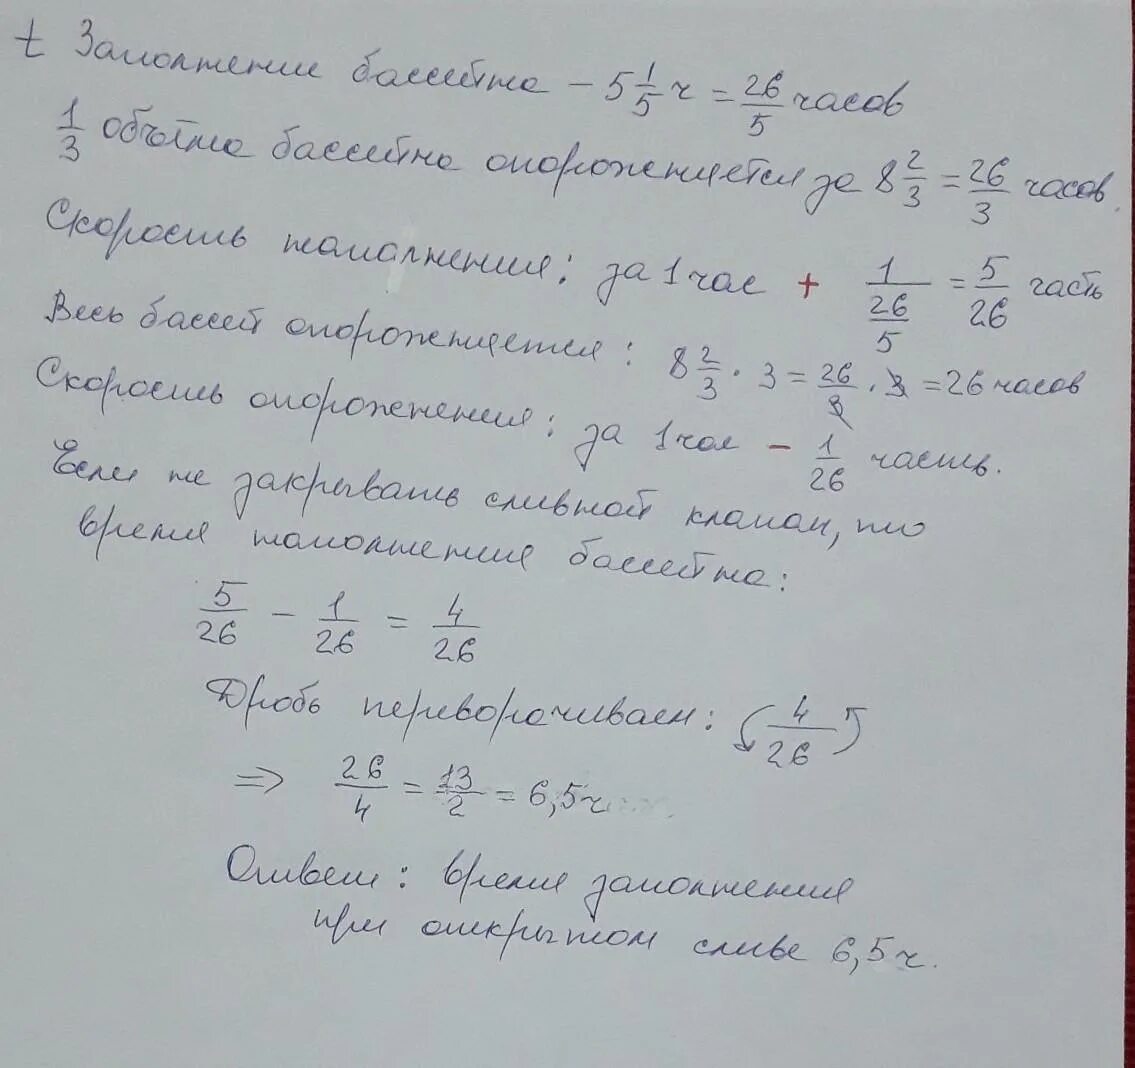 t Заполнение бассейна – 5 1/5 ч = 26/5 часов
1/3 объёма бассейна опорожняется за 8 2/3 = 26/3 часов.
Скорость наполнения: за 1 час + 1/(26/5) = 5/26 часть
Весь бассей опорожняется: 8 2/3 · 3 = 26/3 · 3 = 26 часов
Скорость опорожнения: за 1 час – 1/26 часть.
Если не закрывать сливной клапан, то
время наполнения бассейна:
5/26 – 1/26 = 4/26
Дробь переворачиваем: (4/26)
⇒ 26/4 = 13/2 = 6,5 ч
Ответ: время заполнения
при открытом сливе 6,5 ч.